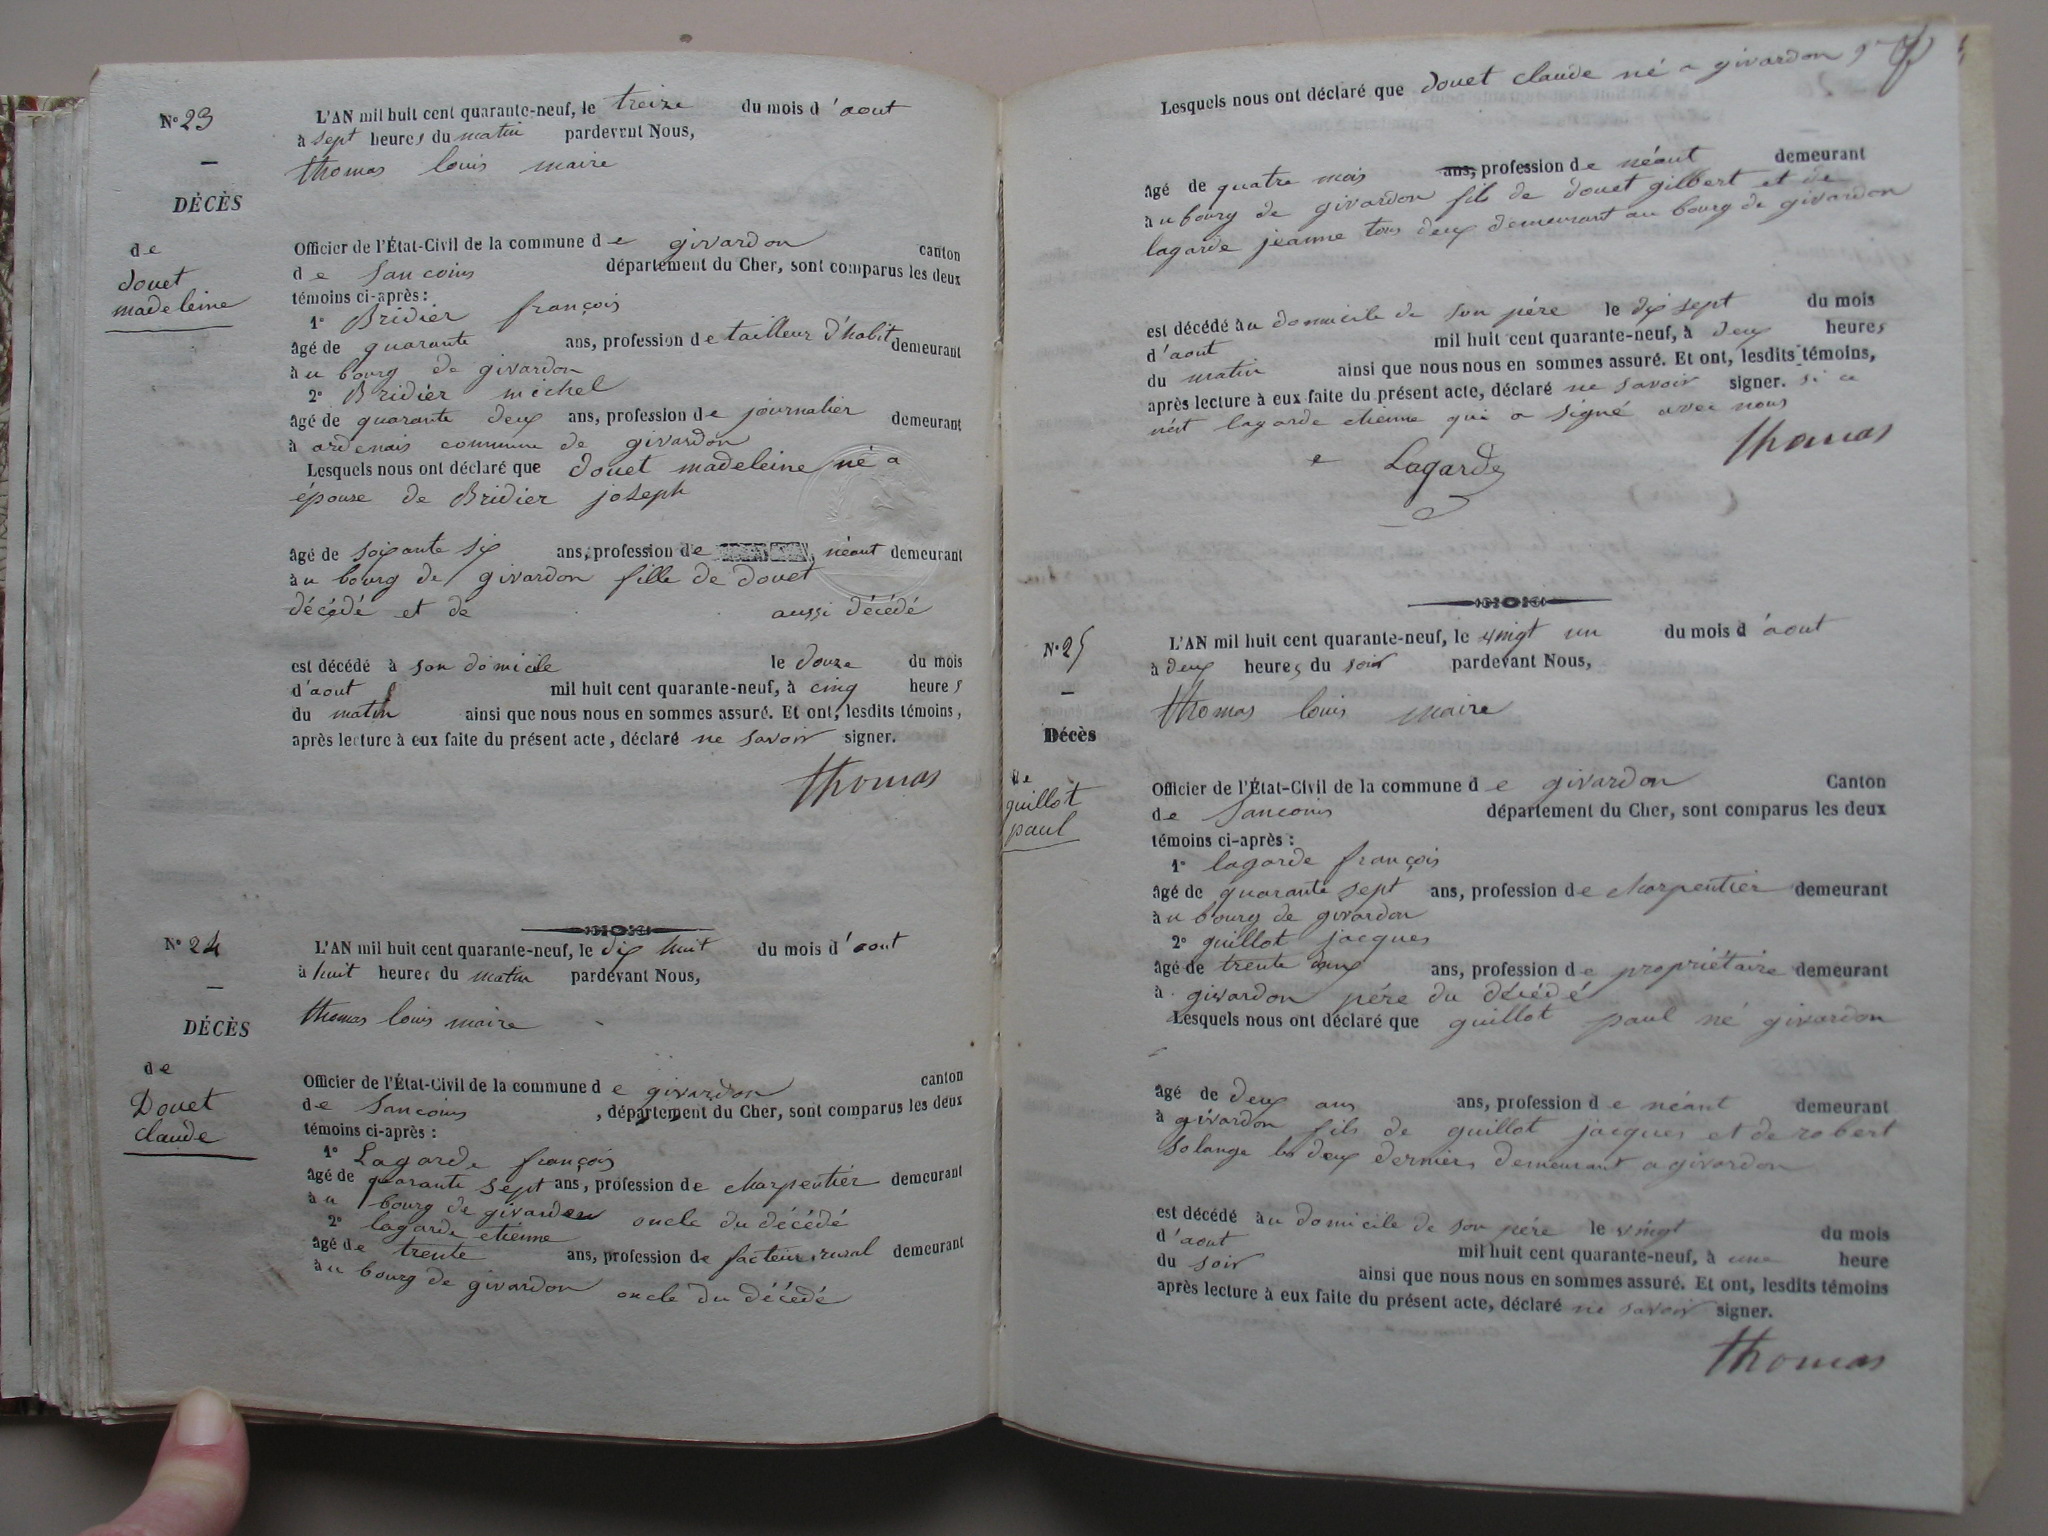 N° 23
—
DÉCÈS
de
douet
madeleine
L'AN mil huit cent quarante-neuf, le treize du mois d'aout
à sept heures du matin pardevent Nous,
thomas louis maire
Officier de l'État-Civil de la commune de givardon canton
de Sancoins département du Cher, sont comparus les deux
témoins ci-après :
1° Bridier françois
âgé de quarante ans, profession de tailleur d'habit demeurant
à u bourg de givardon
2° Bridier michel
âgé de quarante deux ans, profession de journalier demeurant
à ardenais commune de givardon
Lesquels nous ont déclaré que douet madeleine né a
épouse de Bridier joseph
âgé de soixante six ans, profession de néant demeurant
à u bourg de givardon fille de douet
décédé et de aussi décédé
est décédé à son domicile le douze du mois
d'aout mil huit cent quarante-neuf, à cinq heures
du matin ainsi que nous nous en sommes assuré. Et ont, lesdits témoins,
après lecture à eux faite du présent acte, déclaré ne savoir signer.
thomas
N° 24
—
DÉCÈS
de
Douet
claude
L'AN mil huit cent quarante-neuf, le dix huit du mois d'aout
à huit heures du matin pardevant Nous,
thomas louis maire
Officier de l'État-Civil de la commune de givardon canton
de Sancoins, département du Cher, sont comparus les deux
témoins ci-après :
1° Lagarde françois
âgé de quarante sept ans, profession de charpentier demeurant
à u bourg de givardon oncle du décédé
2° lagarde etienne
âgé de trente ans, profession de facteur rural demeurant
à u bourg de givardon oncle du décédé
Lesquels nous ont déclaré que douet claude né a givardon
âgé de quatre mois ans, profession de néant demeurant
à u bourg de givardon fils de douet gilbert et de
lagarde jeanne tous deux demeurant au bourg de givardon
est décédé à u domicile de son pére le dix sept du mois
d'aout mil huit cent quarante-neuf, à deux heures
du matin ainsi que nous nous en sommes assuré. Et ont, lesdits témoins,
après lecture à eux faite du présent acte, déclaré ne savoir signer. si ce
n'est lagarde etienne qui a signé avec nous
Lagarde thomas
N° 25
—
Décès
de
guillot
paul
L'AN mil huit cent quarante-neuf, le vingt un du mois d'aout
à deux heures du soir pardevant Nous,
thomas louis maire
Officier de l'État-Civil de la commune de givardon Canton
de Sancoins département du Cher, sont comparus les deux
témoins ci-après :
1° lagarde françois
âgé de quarante sept ans, profession de charpentier demeurant
à u bourg de givardon
2° guillot jacques
âgé de trente deux ans, profession de propriétaire demeurant
à givardon pére du décédé
Lesquels nous ont déclaré que guillot paul né givardon
âgé de deux ans ans, profession de néant demeurant
à givardon fils de guillot jacques et de robert
solange les deux derniers demeurant a givardon
est décédé à u domicile de son pére le vingt du mois
d'aout mil huit cent quarante-neuf, à une heure
du soir ainsi que nous nous en sommes assuré. Et ont, lesdits témoins
après lecture à eux faite du présent acte, déclaré ne savoir signer.
thomas